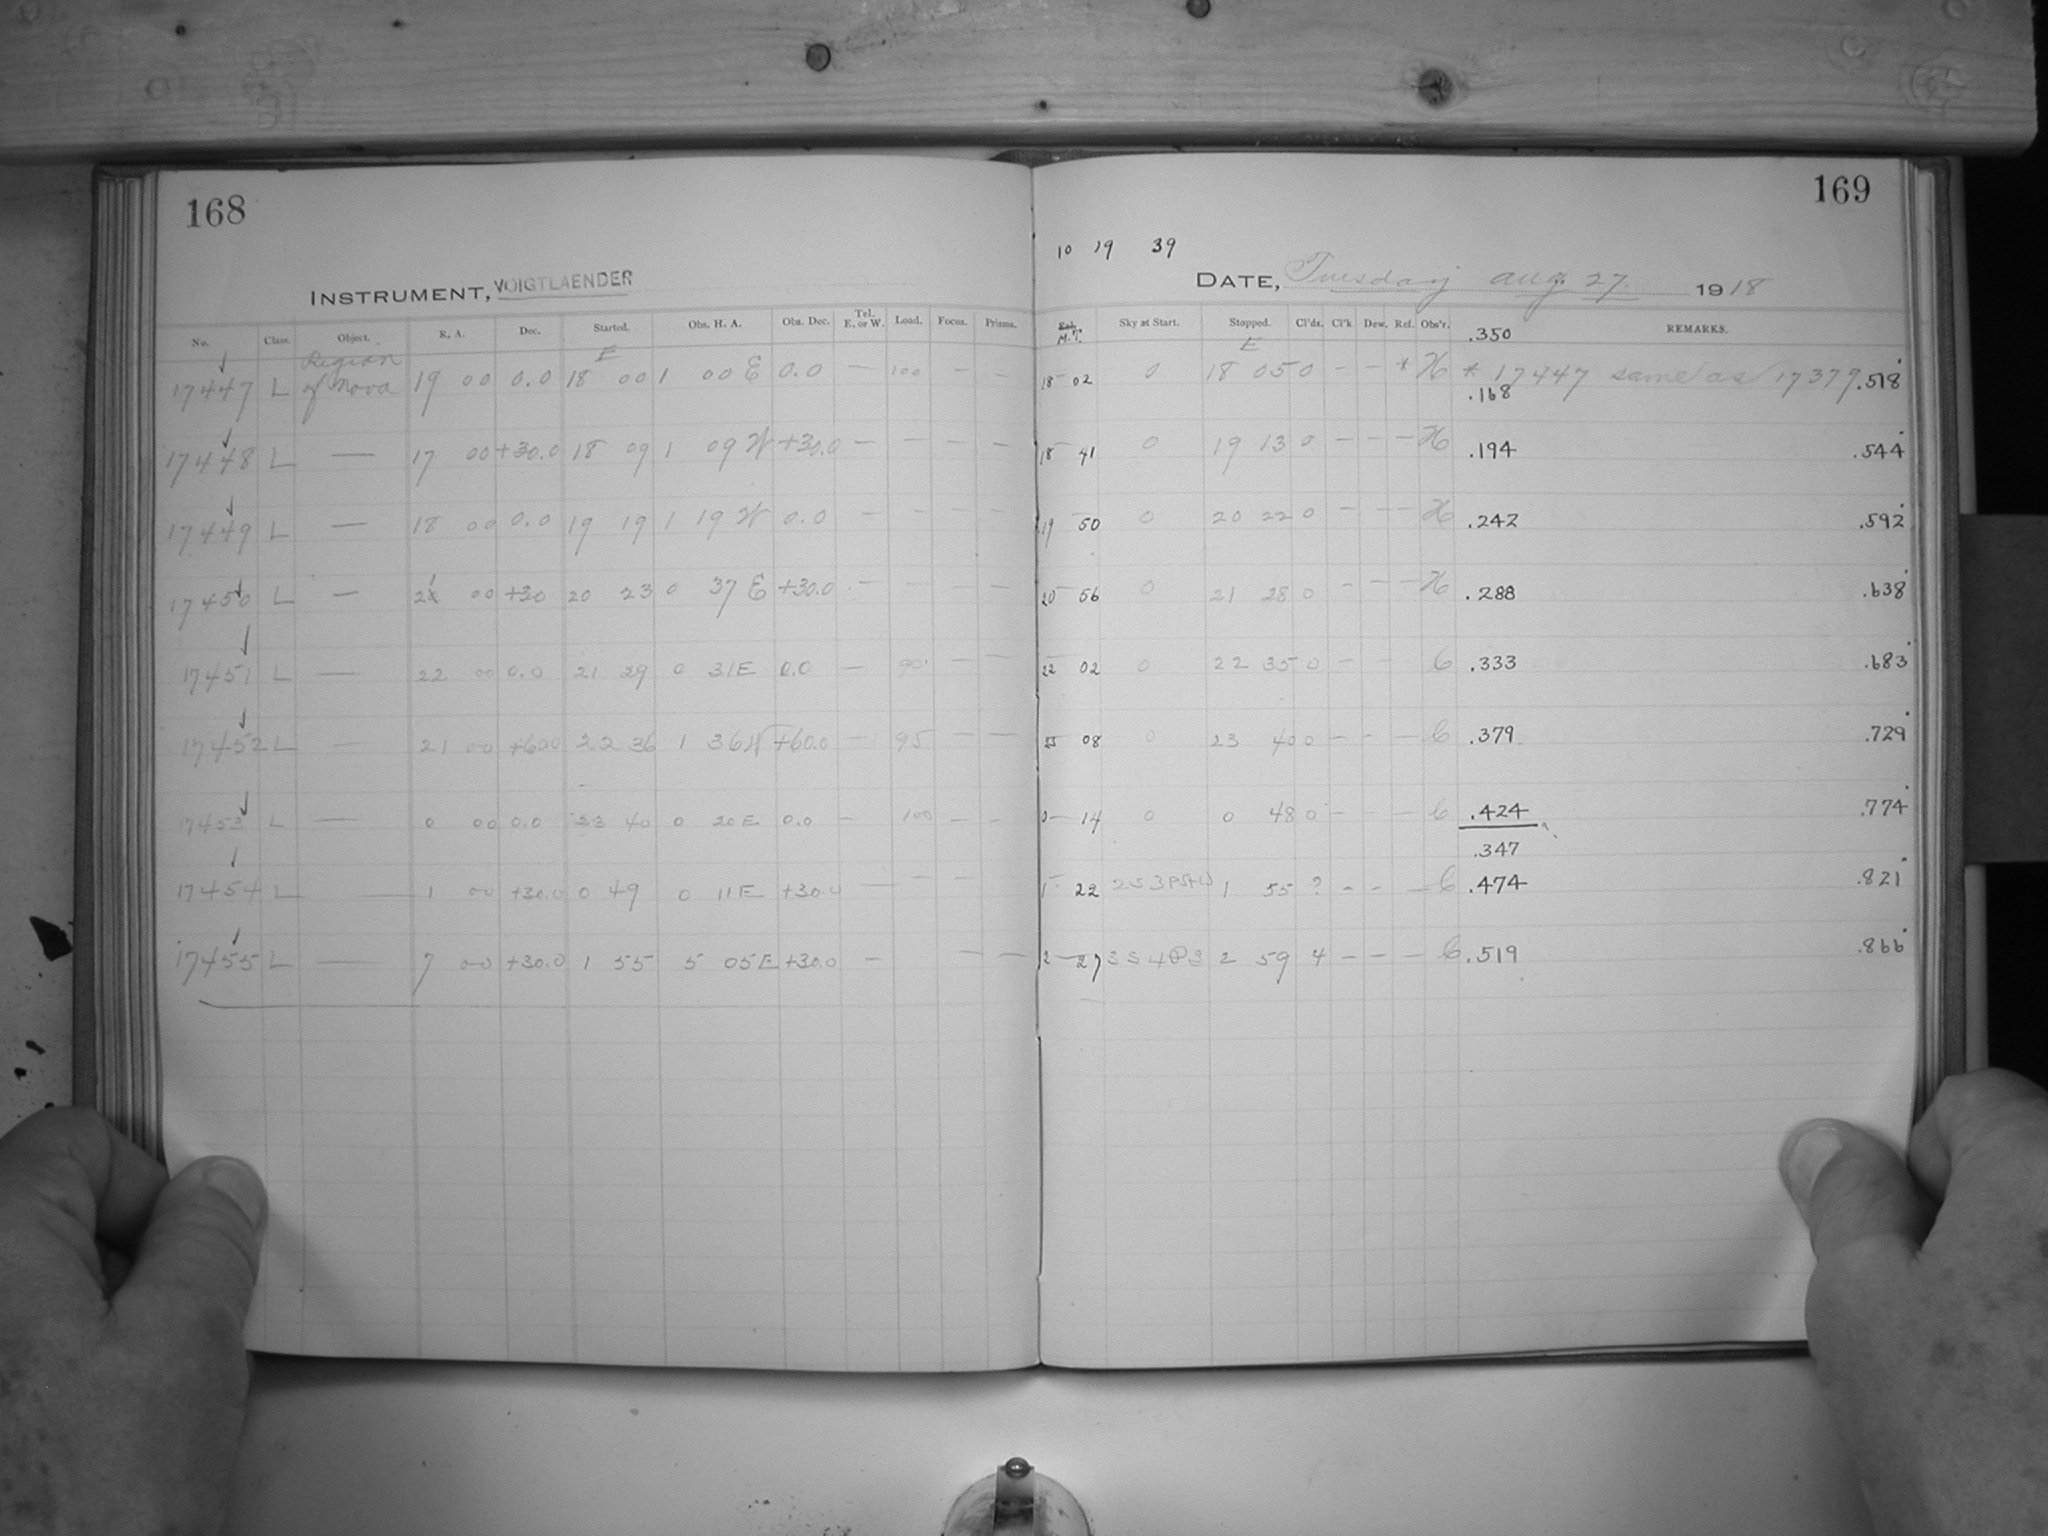 168
169
10 19 39
INSTRUMENT, VOIGTLAENDER
DATE, Tuesday Aug. 27. 1918
No. Class. Object. R. A. Dec. Started. Obs. H. A. Obs. Dec. Tel. E. or W. Load. Focus. Prisms. M.T. Sky at Start. Stopped. Cl'ds. Cl'k. Dew. Ref. Obs'r. .350 REMARKS.
E E
17447 L Region of Nova 19 00 0.0 18 00 1 00 E 0.0 — 100 — — 18 02 0 18 05 0 – – * H * 17447 same as 17379 .518
.168
17448 L — 17 00 +30.0 18 09 1 09 W +30.0 — — — — 18 41 0 19 13 0 – – – H .194 .544
17449 L — 18 00 0.0 19 19 1 19 W 0.0 – – – – 19 50 0 20 22 0 – – – H .242 .592
17450 L — 21 00 +30 20 23 0 37 E +30.0 – – – 20 56 0 21 28 0 – – – H .288 .638
17451 L — 22 00 0.0 21 29 0 31 E 0.0 — 90 — — 22 02 0 22 35 0 – – C .333 .683
17452 L — 21 00 +60.0 22 36 1 36 W +60.0 — 95 — — 23 08 0 23 40 0 – – – C .379 .729
17453 L — 0 00 0.0 23 40 0 20 E 0.0 – 100 – – 0 14 0 0 48 0 – – – C .424 .774
.347
17454 L — 1 00 +30.0 0 49 0 11 E +30.0 — — — — 1 22 1 55 ? – – – C .474 .821
17455 L — 7 00 +30.0 1 55 5 05 E +30.0 – — — 2 27 2 59 4 – – – C .519 .866